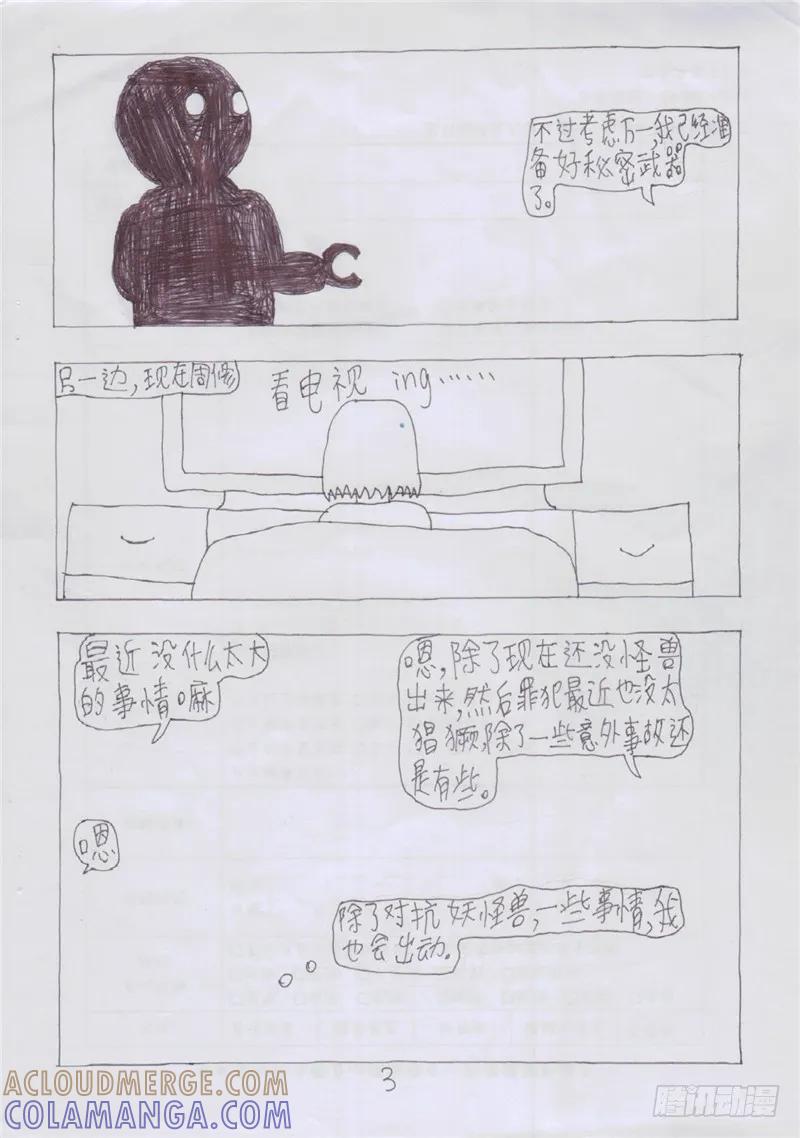 不过考虑万一,我已经准
备好秘密武器
了。
另一边,现在周修
看电视 ing……
最近没什么太大
的事情口麻
嗯,除了现在还没怪兽
出来,然后罪犯最近也没太
猖獗,除了一些意外事故还
是有些。
嗯
除了对抗妖怪兽,一些事情,我
也会出动。
3
ACLOUDMERGE.COM
COLAMANGA.COM
腾讯动漫